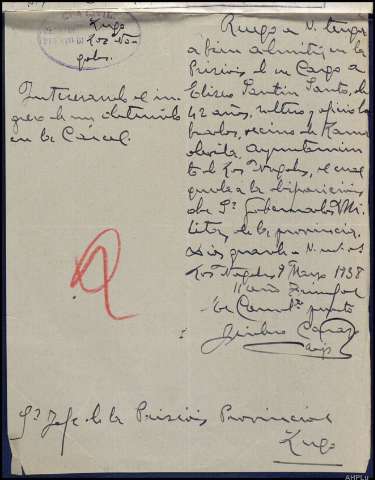 Lugo
Los No-
gales.
Interesando el in-
greso de un detenido
en la Cárcel.
Ruego a V. tenga
a bien admitir en la
Prisión de su Cargo a
Eliseo Santin Santo, de
42 años, soltero y oficio la-
brador, vecino de
Ayuntamien
to de Los Nogales, el cual
queda a la disposición
del Sr. Gobernador Mi-
litar de la provincia.
Dios guarde a V. m. a.
Los Nogales 9 Marzo 1938
II año Triunfal
El Comte. puesto
Sr. Jefe de la Prisión Provincial
Lugo
AHPLu